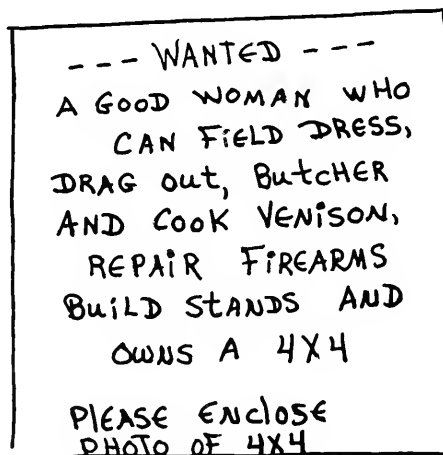 --- WANTED ---
A GOOD WOMAN WHO
CAN FiELD DRESS,
DRAG out, ButCHER
AND COOK VENiSON,
REPAiR FiREARMS
BuiLD StANDS AND
OWNS A 4X4
PlEASE ENclOSE
PHOTO OF 4X4